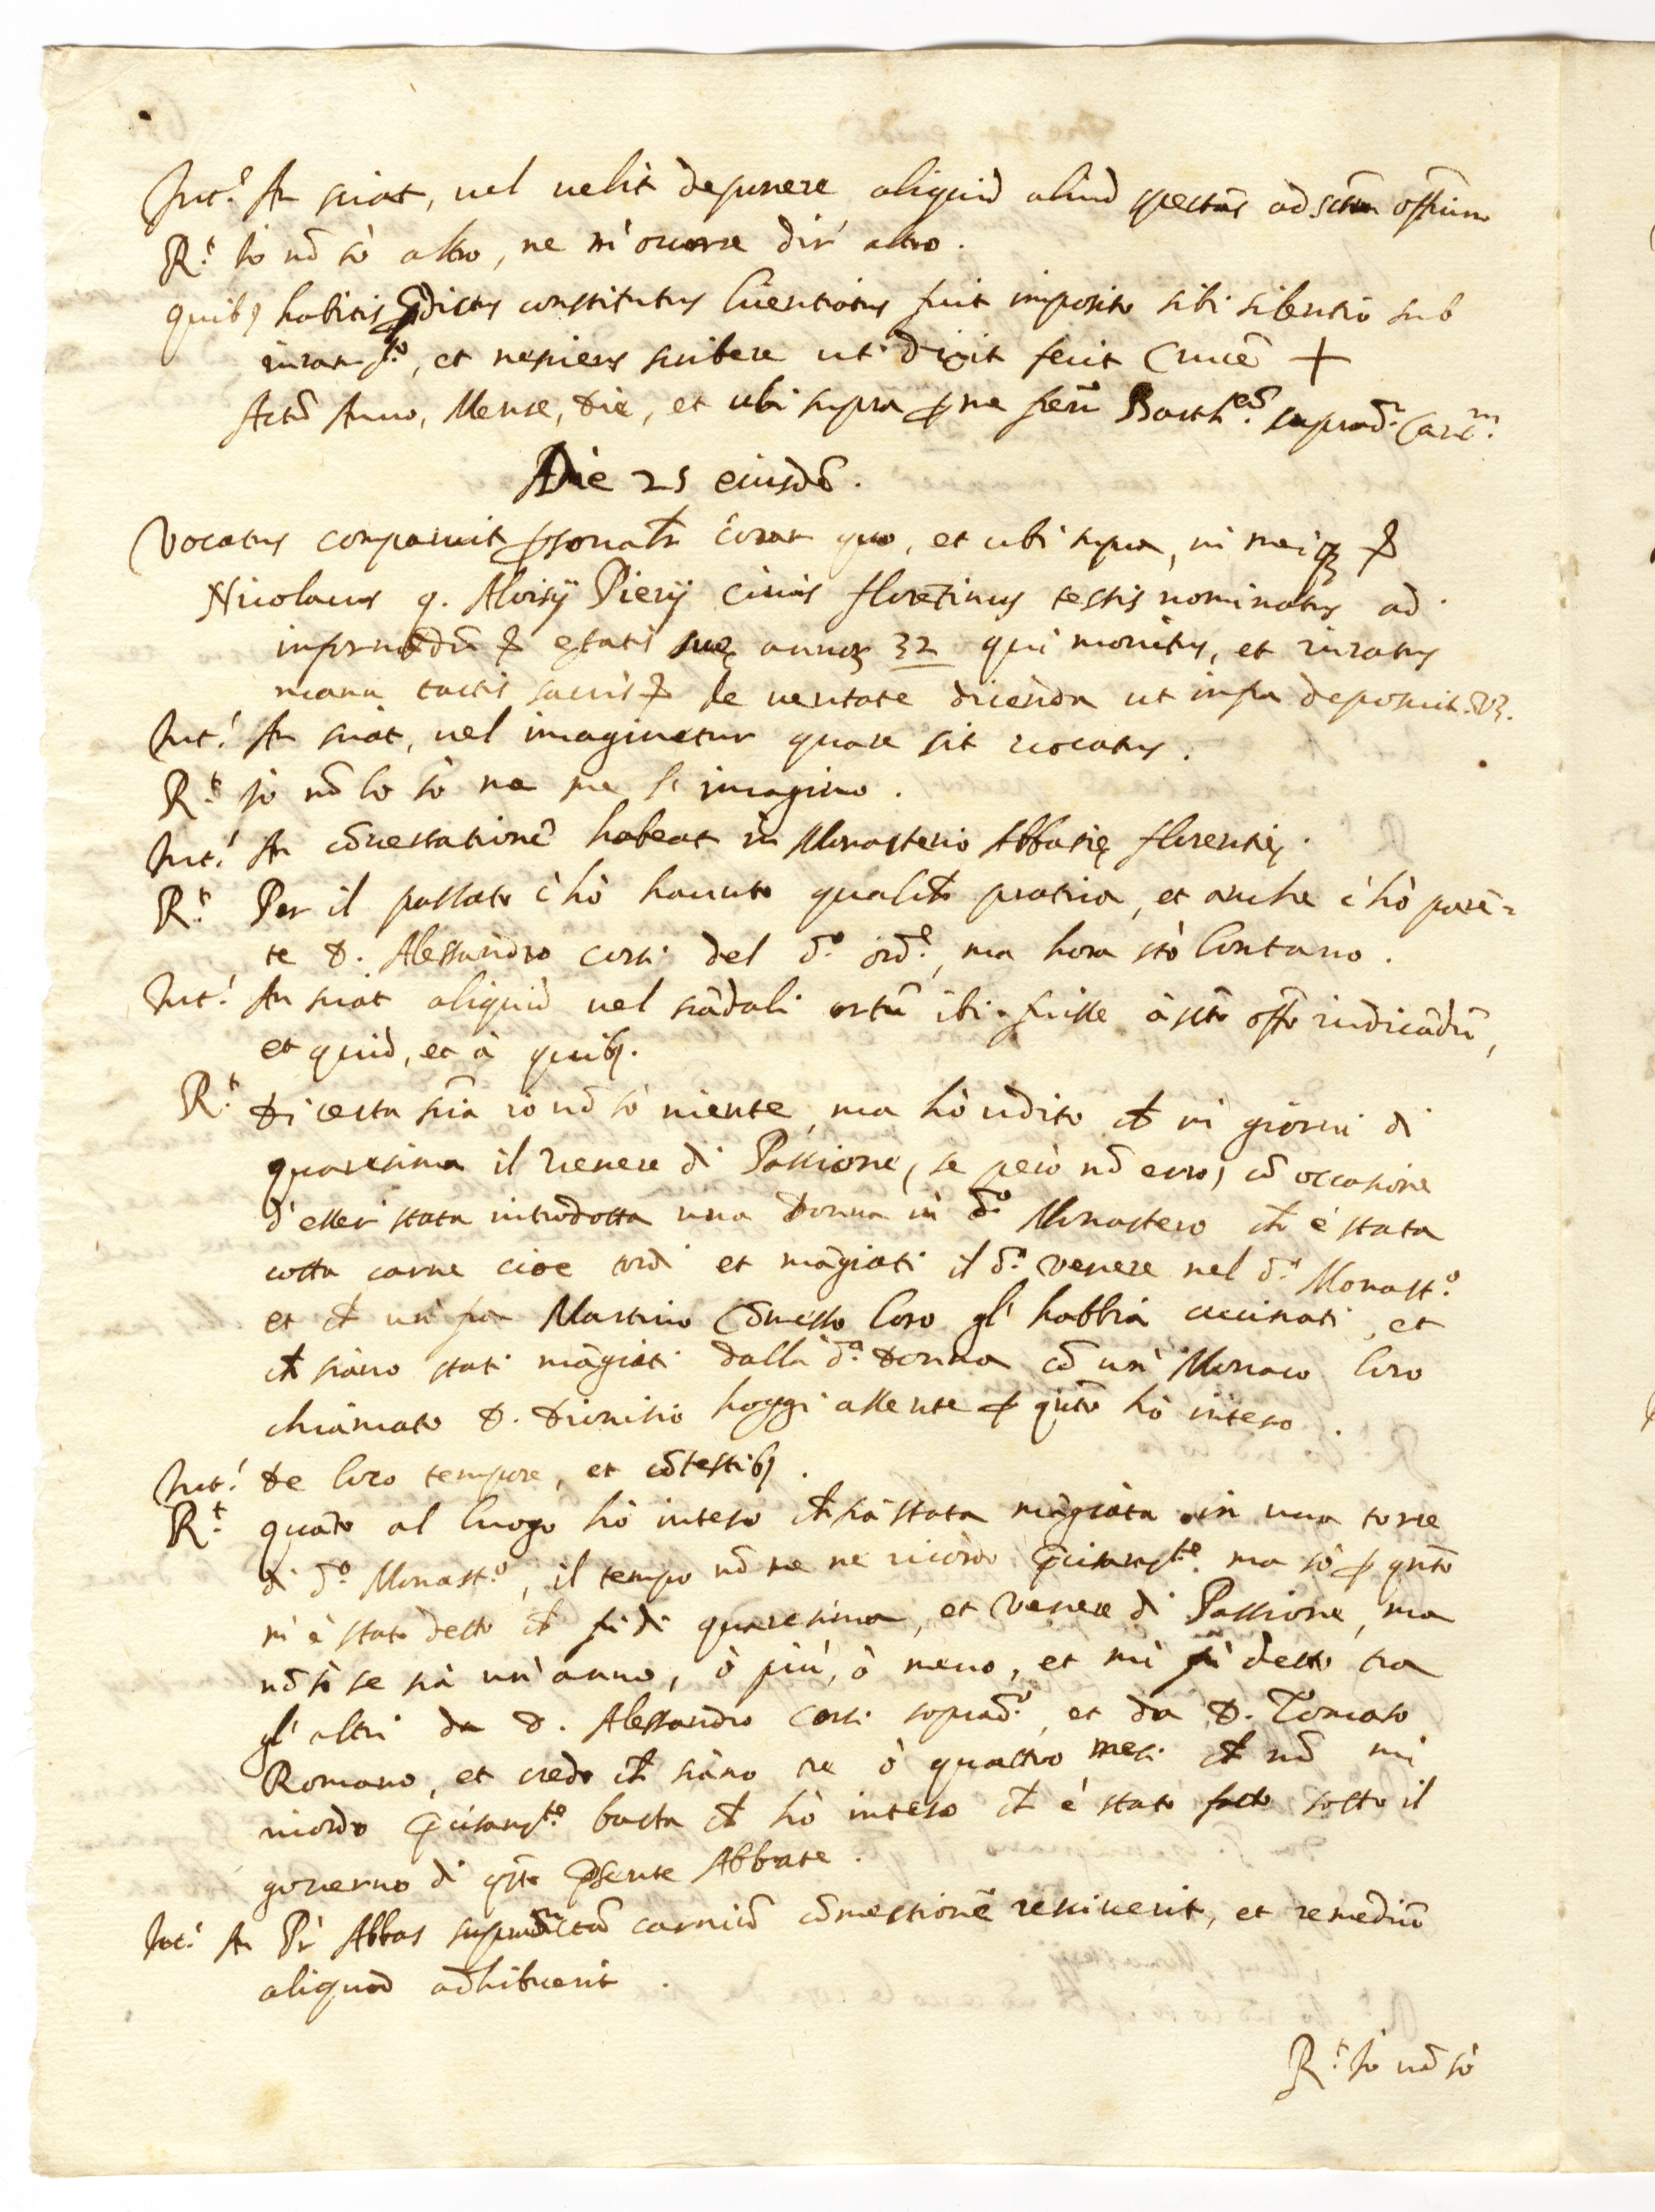 Int.s An sciat, vel velit deponere aliquid aliud spectans ad sctum offium
R.t Io nõ sò altro, ne m'occorre dir altro.
quibꝫ habitis pͫdictus constitutus licentiatus fuit imposito sibi silentio sub
iuramto, et nesciens scribere uti dixit fecit Crucẽ +
Actũ Anno, Mense, Die, et ubi supra ꝑ me
Die 25 eiusdẽ.
Vocatus comparuit ꝑsonalr coram quo, et ubi supra, in meiqꝫ &
Nicolaus q. Aloisij Pierij civis florẽtinus testis nominatus ad
informãdũ & etatis suę annoꝝ 32 qui monitus, et iuratus
manu tactis sacris & de veritate dicenda ut infra deposuit. vꝫ.
Int.s An sciat, vel imaginetur quare sit vocatus.
R.t io nõ lo sò ne me l'imagino.
Int.s An cõversationẽ habeat in Monasterio Abbatię florentię.
R.t Per il passato c'hò havuto qualche pratica, et anche c'hò parẽ=
te D. Alessandro corsi del d.o ord.e, ma hora stò lontano.
Int.s An sciat aliquid vel scãdali ortũ ibi fuisse à scto offo iudicãdũ,
et quid, et à quibꝫ.
R.t Di certa scia io nõ sò niente, ma hò udito che in giorni di
quaresima il venere di Passione, (se però nõ erro) cõ occasione
d'esser stata introdotta una Donna in d.o Monastero che è stata
cotta carne cioe tordi et mãgiati il d.o venere nel d.o Monast.o
et che un fra Martino Cõmesso loro gl'habbia cucinati, et
che siano stati mãgiati dalla d.a Donna cõ un' Monaco loro
chiamato D. Dionisio hoggi assente ꝑ qũto hò inteso.
Int.s De loco tempore, et cõtestibꝫ.
R.t quãto al luogo hò inteso che sia stata mãgiata in una torre
di d.o Monast.o, il tempo nõ me ne ricordo pͨisamte. ma sò ꝑ qũto
m'è stato detto che fù di quaresima, et Venere di Passione, ma
nõ sò se sia un'anno, ò più, ò meno, et mi fù detto tra
gl'altri da D. Alessandro Corsi soprad.o, et da D. Tomaso
Romano, et credo che siano tre ò quattro mesi che nõ mi
ricordo pͨisamte. basta che hò inteso che è stato fatto sotto il
governo di qͣsto pͣsente Abbate.
Int.s An Pr Abbas supradictã carniũ cõmestionẽ resciverit, et remediũ
aliquod adhibuerit.
R.t Io nõ sò